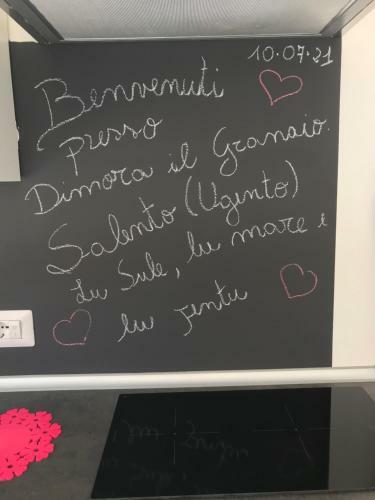 10.07.21
Benvenuti
presso
Dimora il Granaio.
Salento (Ugento)
Lu Sule, lu mare e
lu jentu